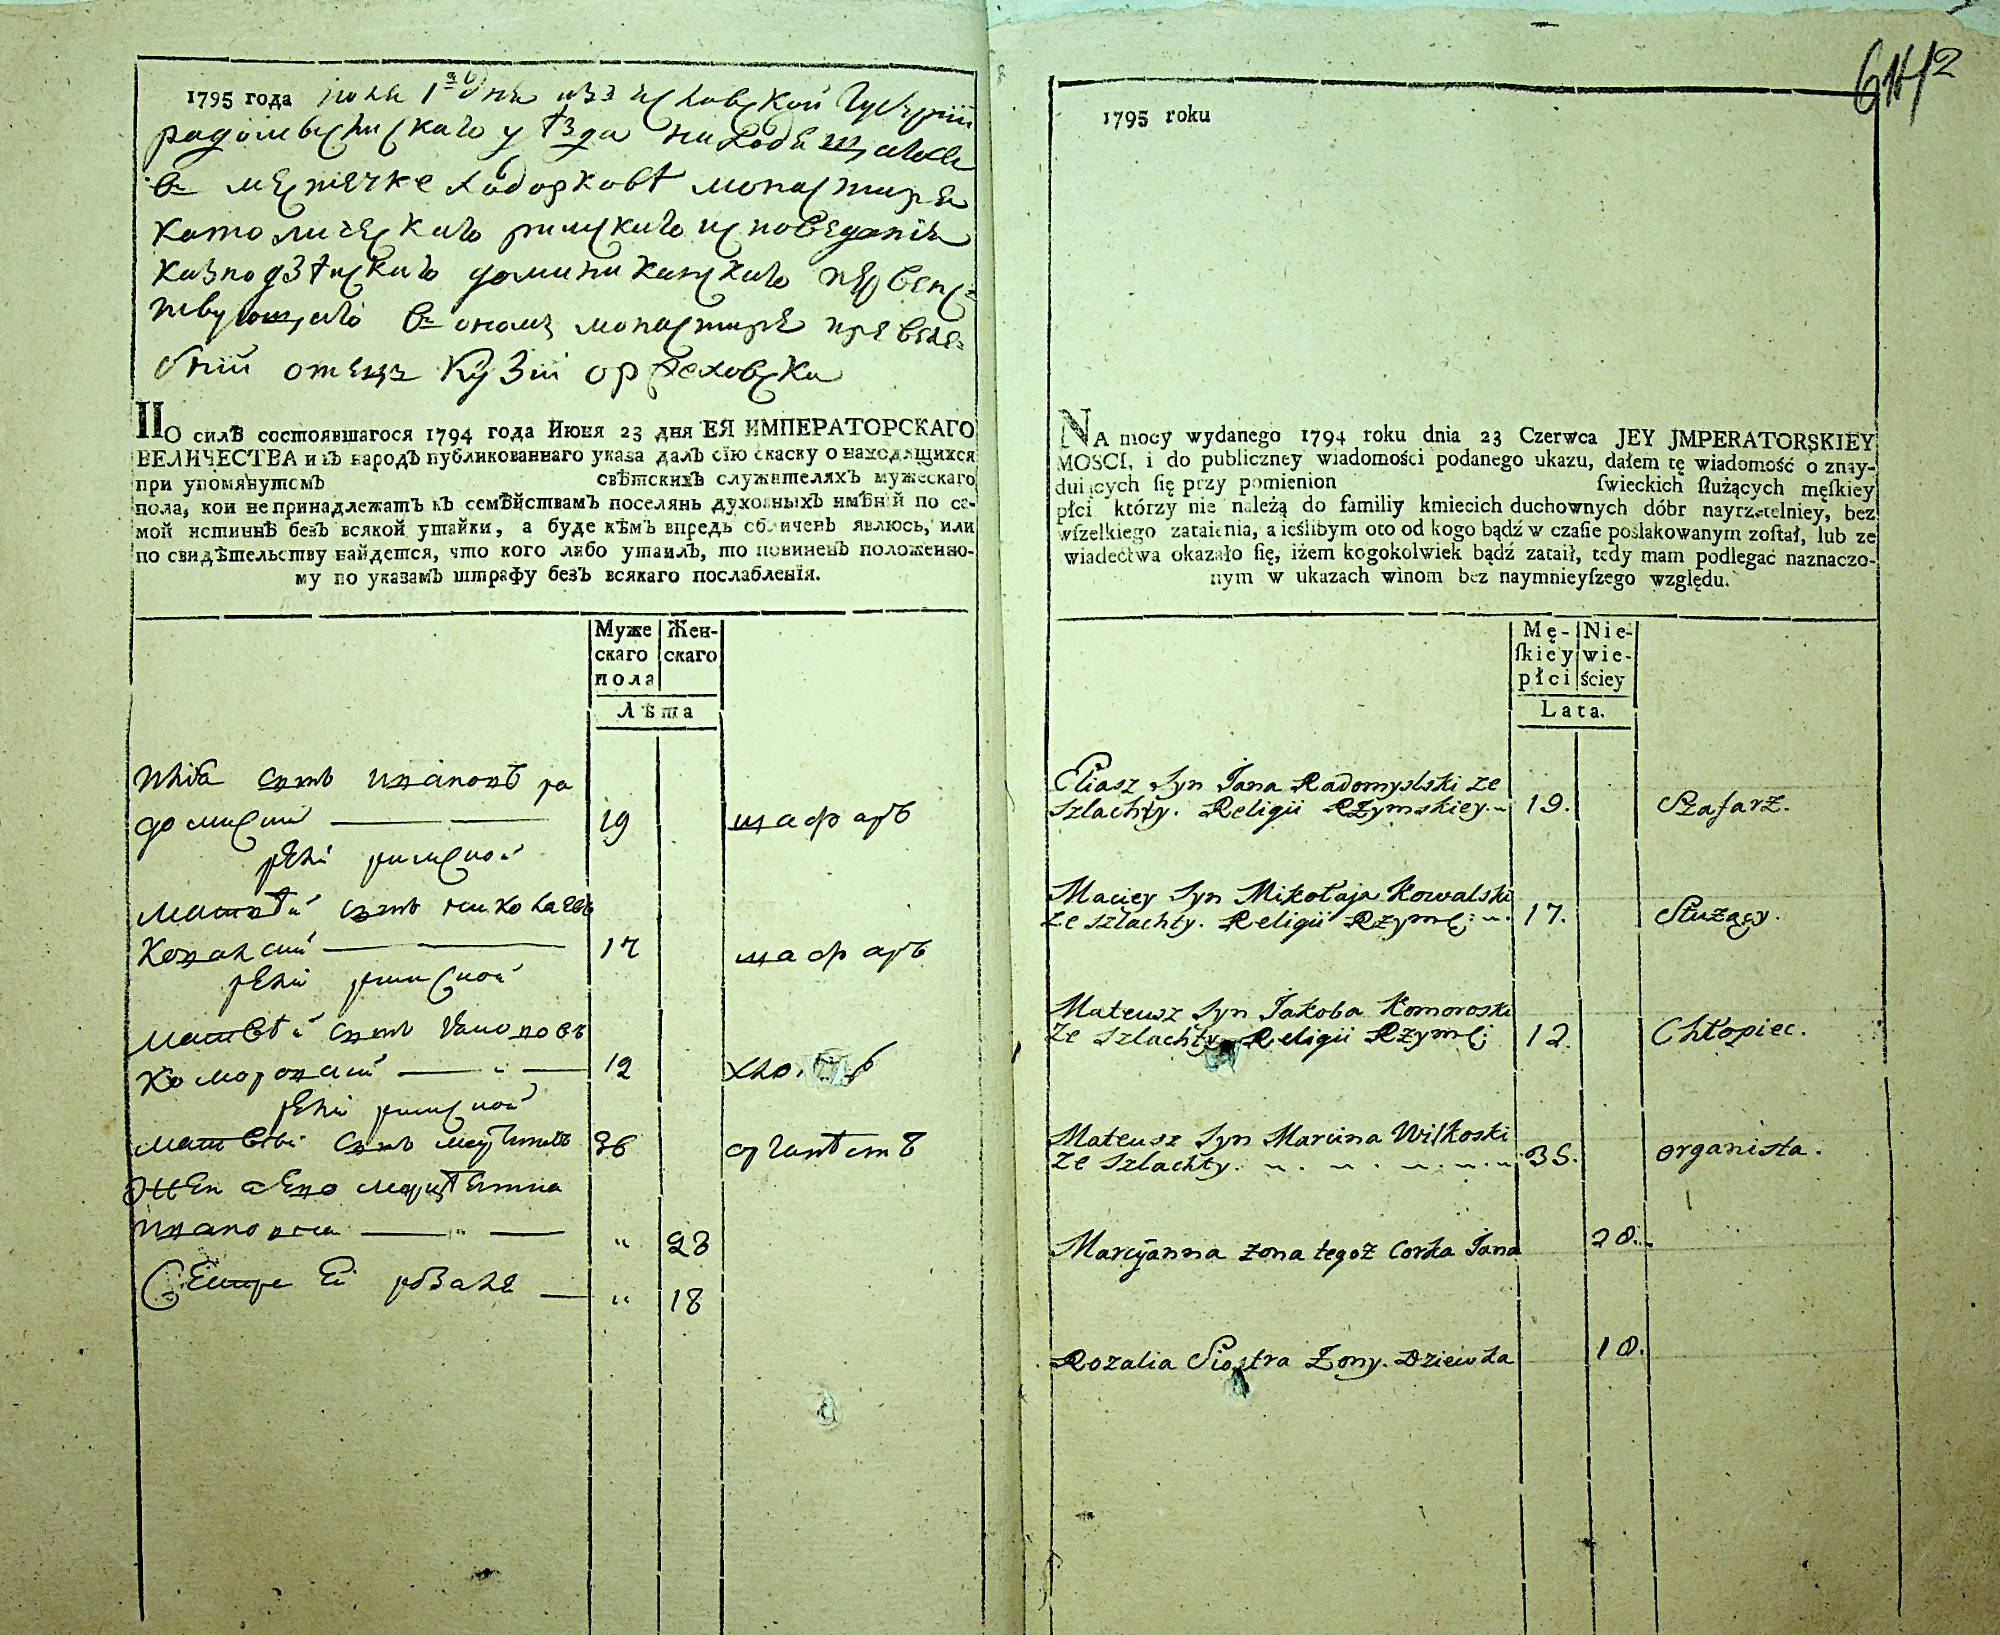 1795 года июля 1го дня изяславской губернiи
радомысльскаго уѣзда находящагося
въ местечке ходорковѣ монастыря
католическаго римскаго исповеданiя
казнодзѣйскаго доминиканскаго первенс-
твующаго въ ономъ монастырѣ превеле-
бнiй отецъ
ПО силѣ состоявшагося 1794 года Июня 23 дня ЕЯ ИМПЕРАТОРСКАГО
ВЕЛИЧЕСТВА и въ народъ публикованнаго указа далъ сїю скаску о находящихся
при упомянутомъ свѣтскихъ служителяхъ мужескаго
пола, кои не принадлежатъ къ семѣйствамъ поселянь духовныхъ имѣнїй по са-
мой истиннѣ безъ всякой утайки, а буде кѣмъ впредь обличенъ явлюсь, или
по свидѣтельству найдется, что кого либо утаилъ, то повиненъ положенно-
му по указамъ штрафу безъ всякаго послабленїя.
Муже Жен-
скаго скаго
пола
Лѣта
Илiя сынъ Ивановъ ра
домскiй 19 шафаръ
релiи римской
Матвѣй сынъ николаевъ
Ковалскiй 17 шафаръ
релiи римской
Матвѣй сынъ
Коморовскiй 12
релiи римской
Матвѣй сынъ 36 органѣстъ
Жена его
Ивановна " 28
Сестра Ей розаля " 18
6142
1795 roku
NA mocy wydanego 1794 roku dnia 23 Czerwca JEY JMPERATORSKIEY
MOSCI, i do publiczney wiadomości podanego ukazu, dałem tę wiadomość o znay-
duiących ſię przy pomienion ſwieckich ſłużących męſkiey
płci którzy nie należą do familiy kmiecich duchownych dóbr nayrzetelniey, bez
wſzelkiego zataienia, a ieślibym oto od kogo bądź w czaſie poślakowanym zoſtał, lub ze
wiadectwa okazało ſię, iżem kogokolwiek bądź zataił, tedy mam podlegać naznaczo-
nym w ukazach winom bez naymnieyſzego względu.
Mę- Nie-
ſkiey wie-
płci ściey
Lata.
Eliasz Syn Jana Radomyslski ze
szlachty. Religii Rzymskiey. 19. Szafarz.
Maciey Syn Mikołaja Kowalski
ze szlachty. Religii Rzyms: 17. Służący.
Mateusz Syn Jakoba Komoroski
ze szlachty. Religii Rzyms: 12. Chłopiec.
Mateusz Syn Marcina Wilkoski
ze szlachty. 36. organista.
Marcyanna zona tegoż Corka Jana 28.
Rozalia Siostra Zony. Dziewka 18.